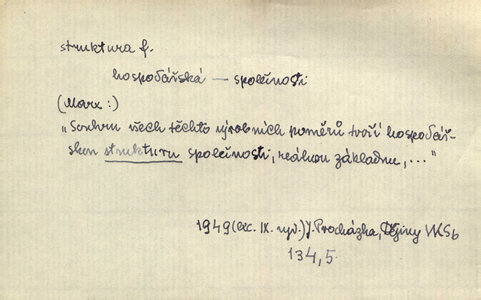 struktura f.
hospodářská — společnosti
(Marx:)
„Souhrn všech těchto výrobních poměrů tvoří hospodář-
skou strukturu společnosti, reálnou základnu,..."
1949 (lic. IX. vyd.) J. Procházka, Dějiny VKSb
134,5